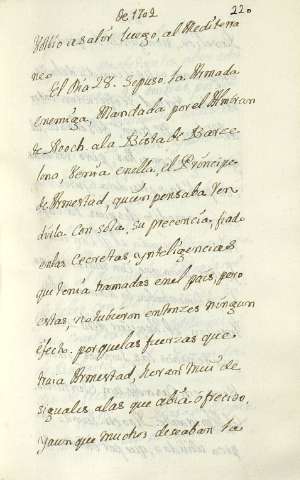 de 1702
220
Volvio a salir luego, al Mediterra
neo.
El Dia 28. sepuso la Armada
enemiga, Mandada por el Almiran
de Rooch. ala Bista de Barce
lona, Venia enella, el Príncipe
de Armestad, quien pensaba ren
dirla con sola, su precencia, fiado
enlas cecretas, ynteligencias
que tenia tramadas enel pais, pero
estas, notubieron entonzes ningun
éfecto. porquelas fuerzas que
traia Armestad, heran mui de
siguales alas que abia ófrecido,
yaunque muchos deseaban la